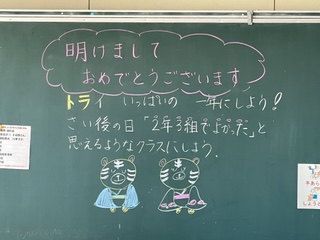 明けまして
おめでとうございます
トライ いっぱいの 一年にしよう!
さい後の日「2年3組でよかった」と
思えるようなクラスにしよう。